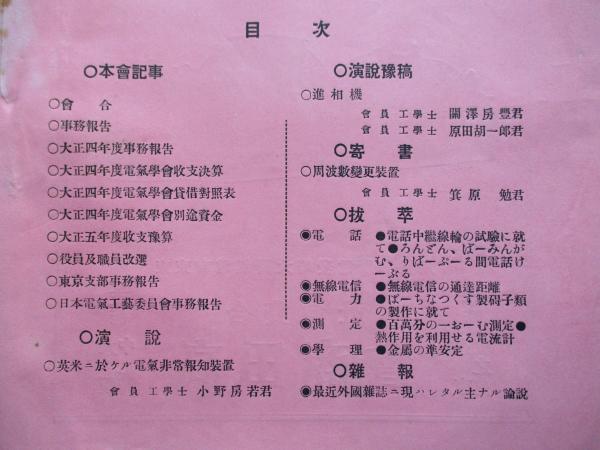 目次
○本會記事
○會 合
○事務報告
○大正四年度事務報告
○大正四年度電氣學會收支決算
○大正四年度電氣學會貸借對照表
○大正四年度電氣學會別途資金
○大正五年度收支豫算
○役員及職員改選
○東京支部事務報告
○日本電氣工藝委員會事務報告
○演 説
○英米ニ於ケル電氣非常報知裝置
會員 工學士 小野房若君
○演説豫稿
○進相機
會員 工學士 關澤房豐君
會員 工學士 原田胡一郎君
○寄 書
○周波數變更裝置
會員 工學士 箕原 勉君
○拔 萃
◉電 話 ●電話中繼線輪の試驗に就
て●ろんどん、ばーみんが
む、りばーぷーる間電話け
ーぶる
◉無線電信 ●無線電信の通達距離
◉電 力 ●ぽーちなつくす製碍子類
の製作に就て
◉測 定 ●百萬分の一おーむ測定●
熱作用を利用せる電流計
◉學 理 ●金屬の準安定
○雜 報
◉最近外國雜誌ニ現ハレタル主ナル論説